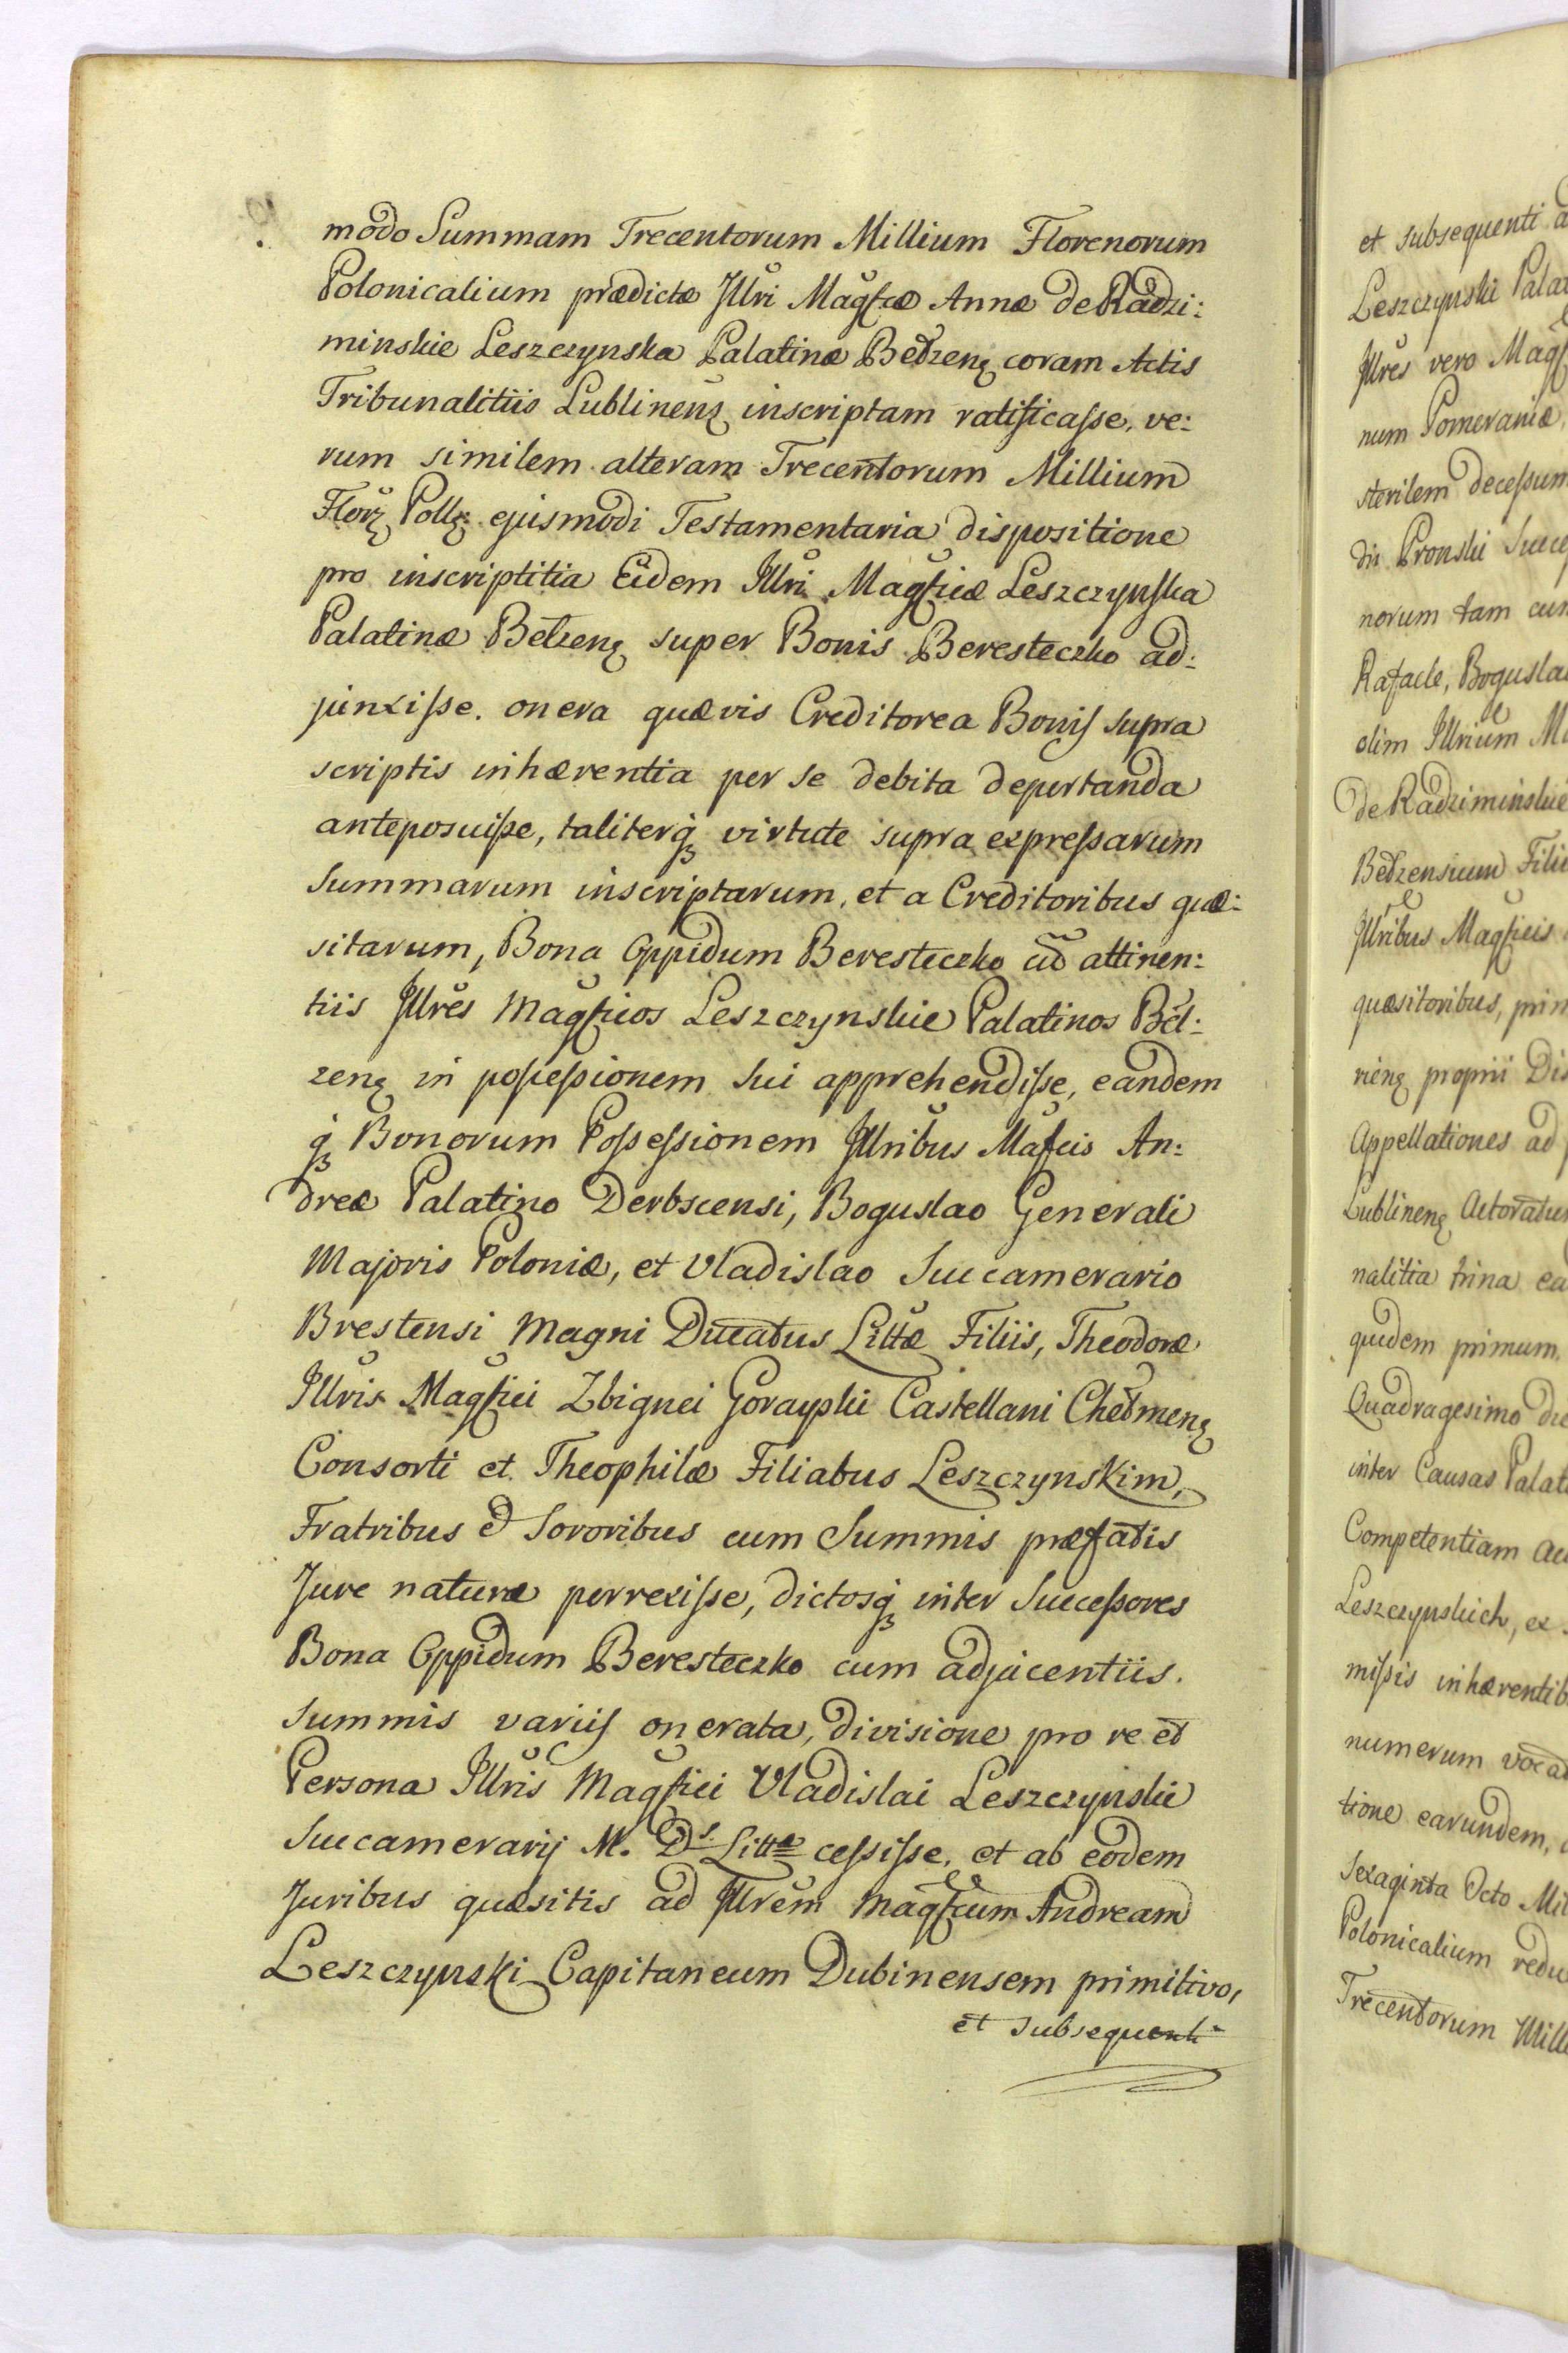 modo Summam Trecentorum Millium Florenorum
Polonicalium prædictæ Jllri Magfcæ Annæ de Radzi:
minskie Leszczynska Palatinæ Bełzenȝ coram Actis
Tribunalitiis Lublinenȝ inscriptam ratificaſse, ve:
rum similem alteram Trecentorum Millium
Florȝ Pollȝ ejusmodi Testamentaria dispositione
pro inscriptitia Eidem Jllri Magficæ Leszczynska
Palatinæ Bełzenȝ super Bonis Beresteczko ad:
junxiſse. onera quævis Creditorea Bonis supra
scriptis inhærentia per se debita deportanda
anteposuiſse, taliterqȝ virtute supra expreſsarum
Summarum inscriptarum, et a Creditoribus quæ:
sitarum, Bona Oppidum Beresteczko cū attinen:
tiis Jllres Magficos Leszczynskie Palatinos Beł:
zenȝ in poſseſsionem sui apprehendiſse, eandem
qȝ Bonorum Poſseſsionem Jllribus Mafcis An:
dreæ Palatino Derbscensi, Boguslao Generali
Majoris Poloniæ, et Vladislao Succamerario
Brestensi Magni Ducatus Littæ Filiis, Theodoræ
Jllris Magfici Zbignei Gorayski Castellani Chełmenȝ
Consorti et Theophilæ Filiabus Leszczynskim,
Fratribus et Sororibus cum Summis præfatis
Jure naturæ perrexiſse, dictosqȝ inter Succeſsores
Bona Oppidum Beresteczko cum adjacentiis.
Summis variis onerata, divisione pro re et
Persona Jllris Magfici Vladislai Leszczynskie
Succamerarij M. Ds. Littæ ceſsiſse, et ab eodem
Juribus quæsitis ad Jllrem Magfcum Andream
Leszczynski Capitaneum Dubinensem primitivo,
et subsequenti
et subsequenti
Leszczynskie
Jllres vero
num Pomeraniæ,
sterilem deceſsum
dis Pronski
norum tam cum
Rafaele,
olim Jllrium
de Radziminskie
Bełzensium
Jllribus Magficis
quæsitoribus,
rienȝ proprii
Appellationes ad
Lublinenȝ
nalitia trina
quidem primum
Quadragesimo
inter Causas
Competentiam
Leszczynskich, ex
miſsis
numerum
tione earundem,
Sexaginta Octo
Polonicalium
Trecentorum